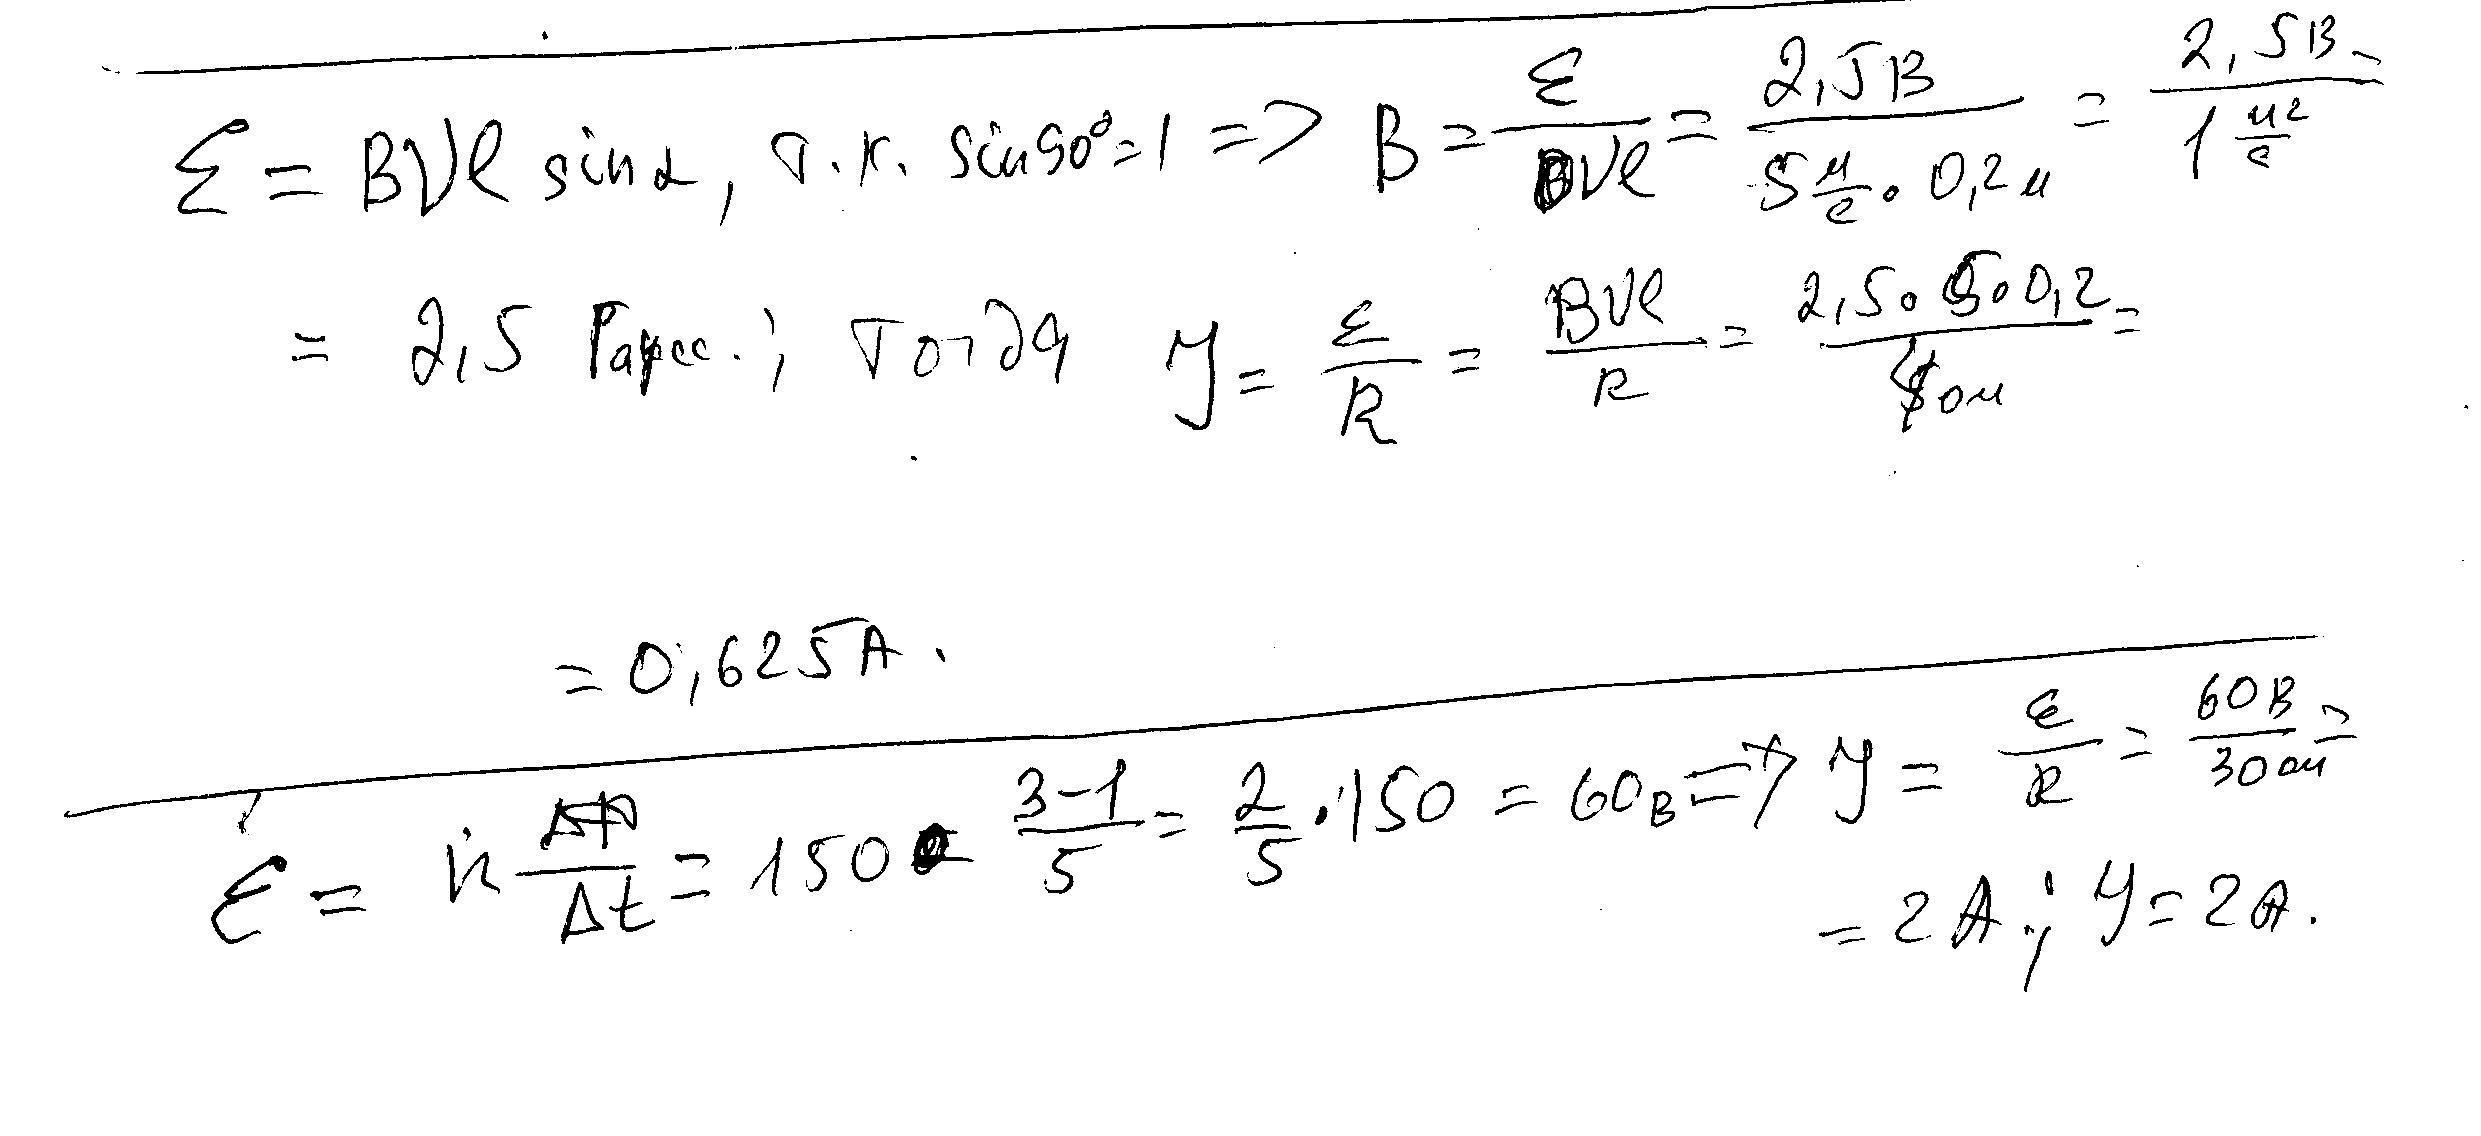 ε = BVl sinα, т.к. sin90°=1 => B = ε/BVl = 2,5В/5 м/с · 0,2м = 2,5В/1 м²/с =
= 2,5 ; Тогда У = ε/R = BVl/R = 2,5·5·0,2/ Ом =
= 0,625А.
ε = n ΔΦ/Δt = 150 · 3-1/5 = 2/5 · 150 = 60В => У = ε/R = 60В/30Ом =
= 2А ; У = 2А.